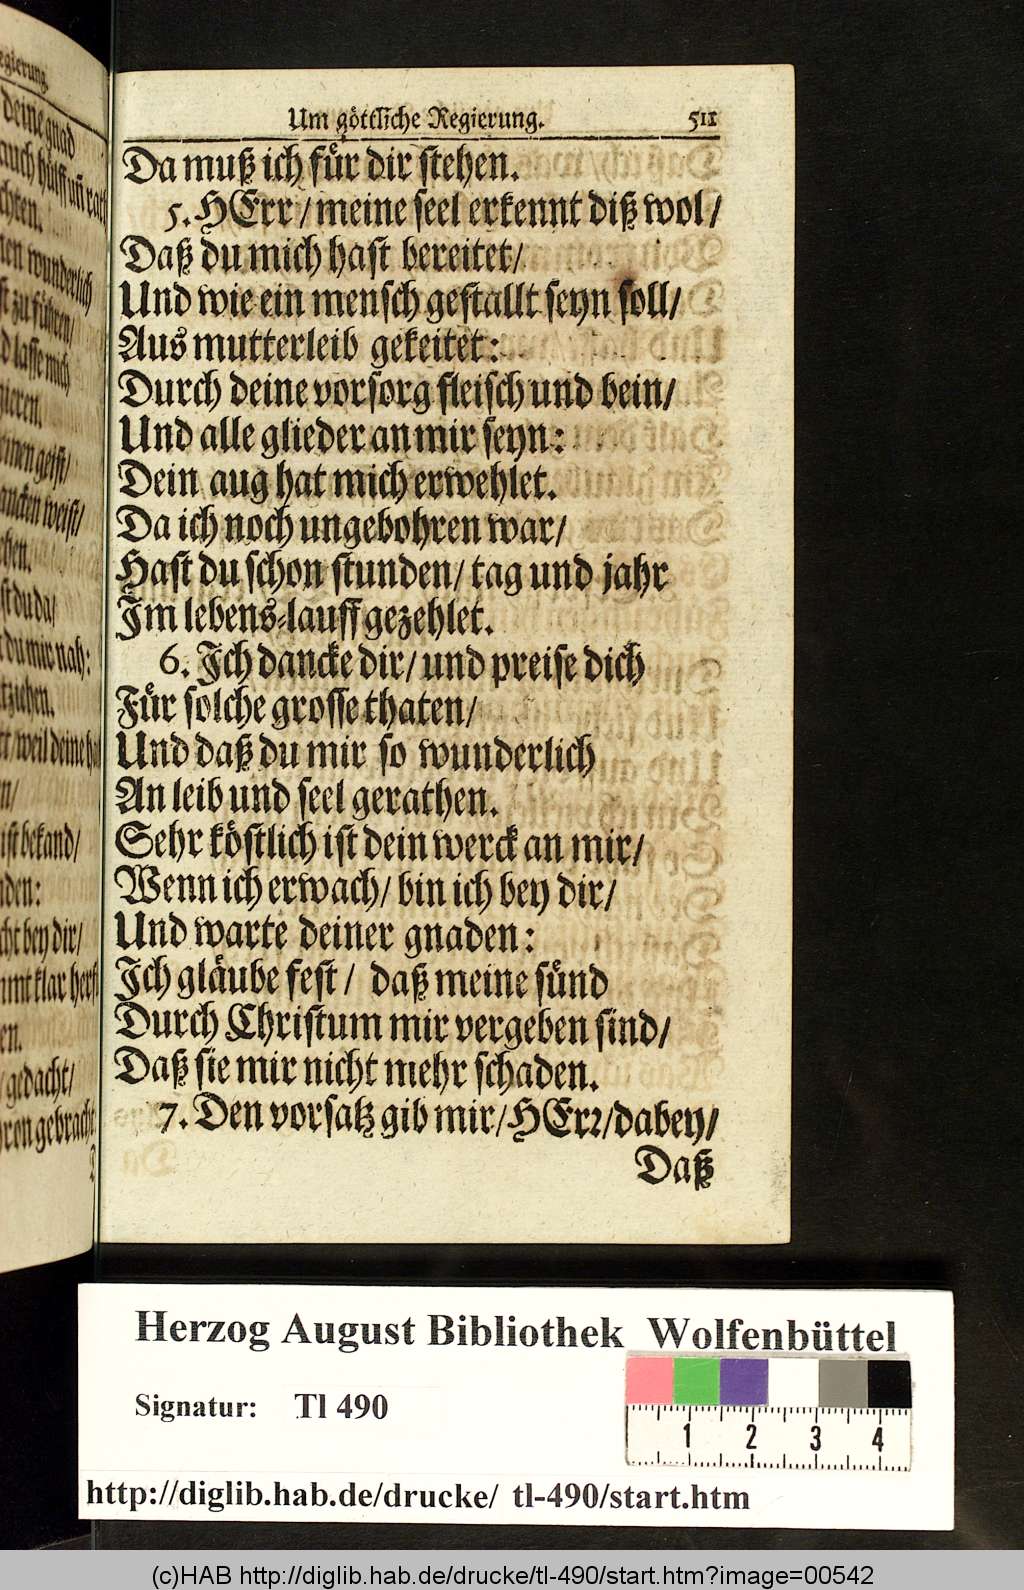 Um göttliche Regierung. 511
Da muß ich für dir stehen.
5. HErr / meine seel erkennt diß wol /
Daß du mich hast bereitet /
Und wie ein mensch gestallt seyn soll /
Aus mutterleib gekeitet:
Durch deine vorsorg fleisch und bein /
Und alle glieder an mir seyn:
Dein aug hat mich erwehlet.
Da ich noch ungebohren war /
Hast du schon stunden / tag und jahr
Im lebens-lauff gezehlet.
6. Ich dancke dir / und preise dich
Für solche grosse thaten /
Und daß du mir so wunderlich
An leib und seel gerathen.
Sehr köstlich ist dein werck an mir /
Wenn ich erwach / bin ich bey dir /
Und warte deiner gnaden:
Ich gläube fest / daß meine sünd
Durch Christum mir vergeben sind /
Daß sie mir nicht mehr schaden.
7. Den vorsatz gib mir / HErr / dabey /
Daß
egierung.
deine gnad
auch hülff uñ rath
chten.
en wunderlich
st zu führen /
d lasse mich
ieren.
inen geist /
ancken weist /
eben.
st du da /
du mir nah:
tziehen.
weil deine
n /
ist bekand /
nden:
cht bey dir /
klar
en.
gedacht /
ren gebracht
Herzog August Bibliothek Wolfenbüttel
Signatur: Tl 490
1 2 3 4
http://diglib.hab.de/drucke/ tl-490/start.htm
(c)HAB http://diglib.hab.de/drucke/tl-490/start.htm?image=00542